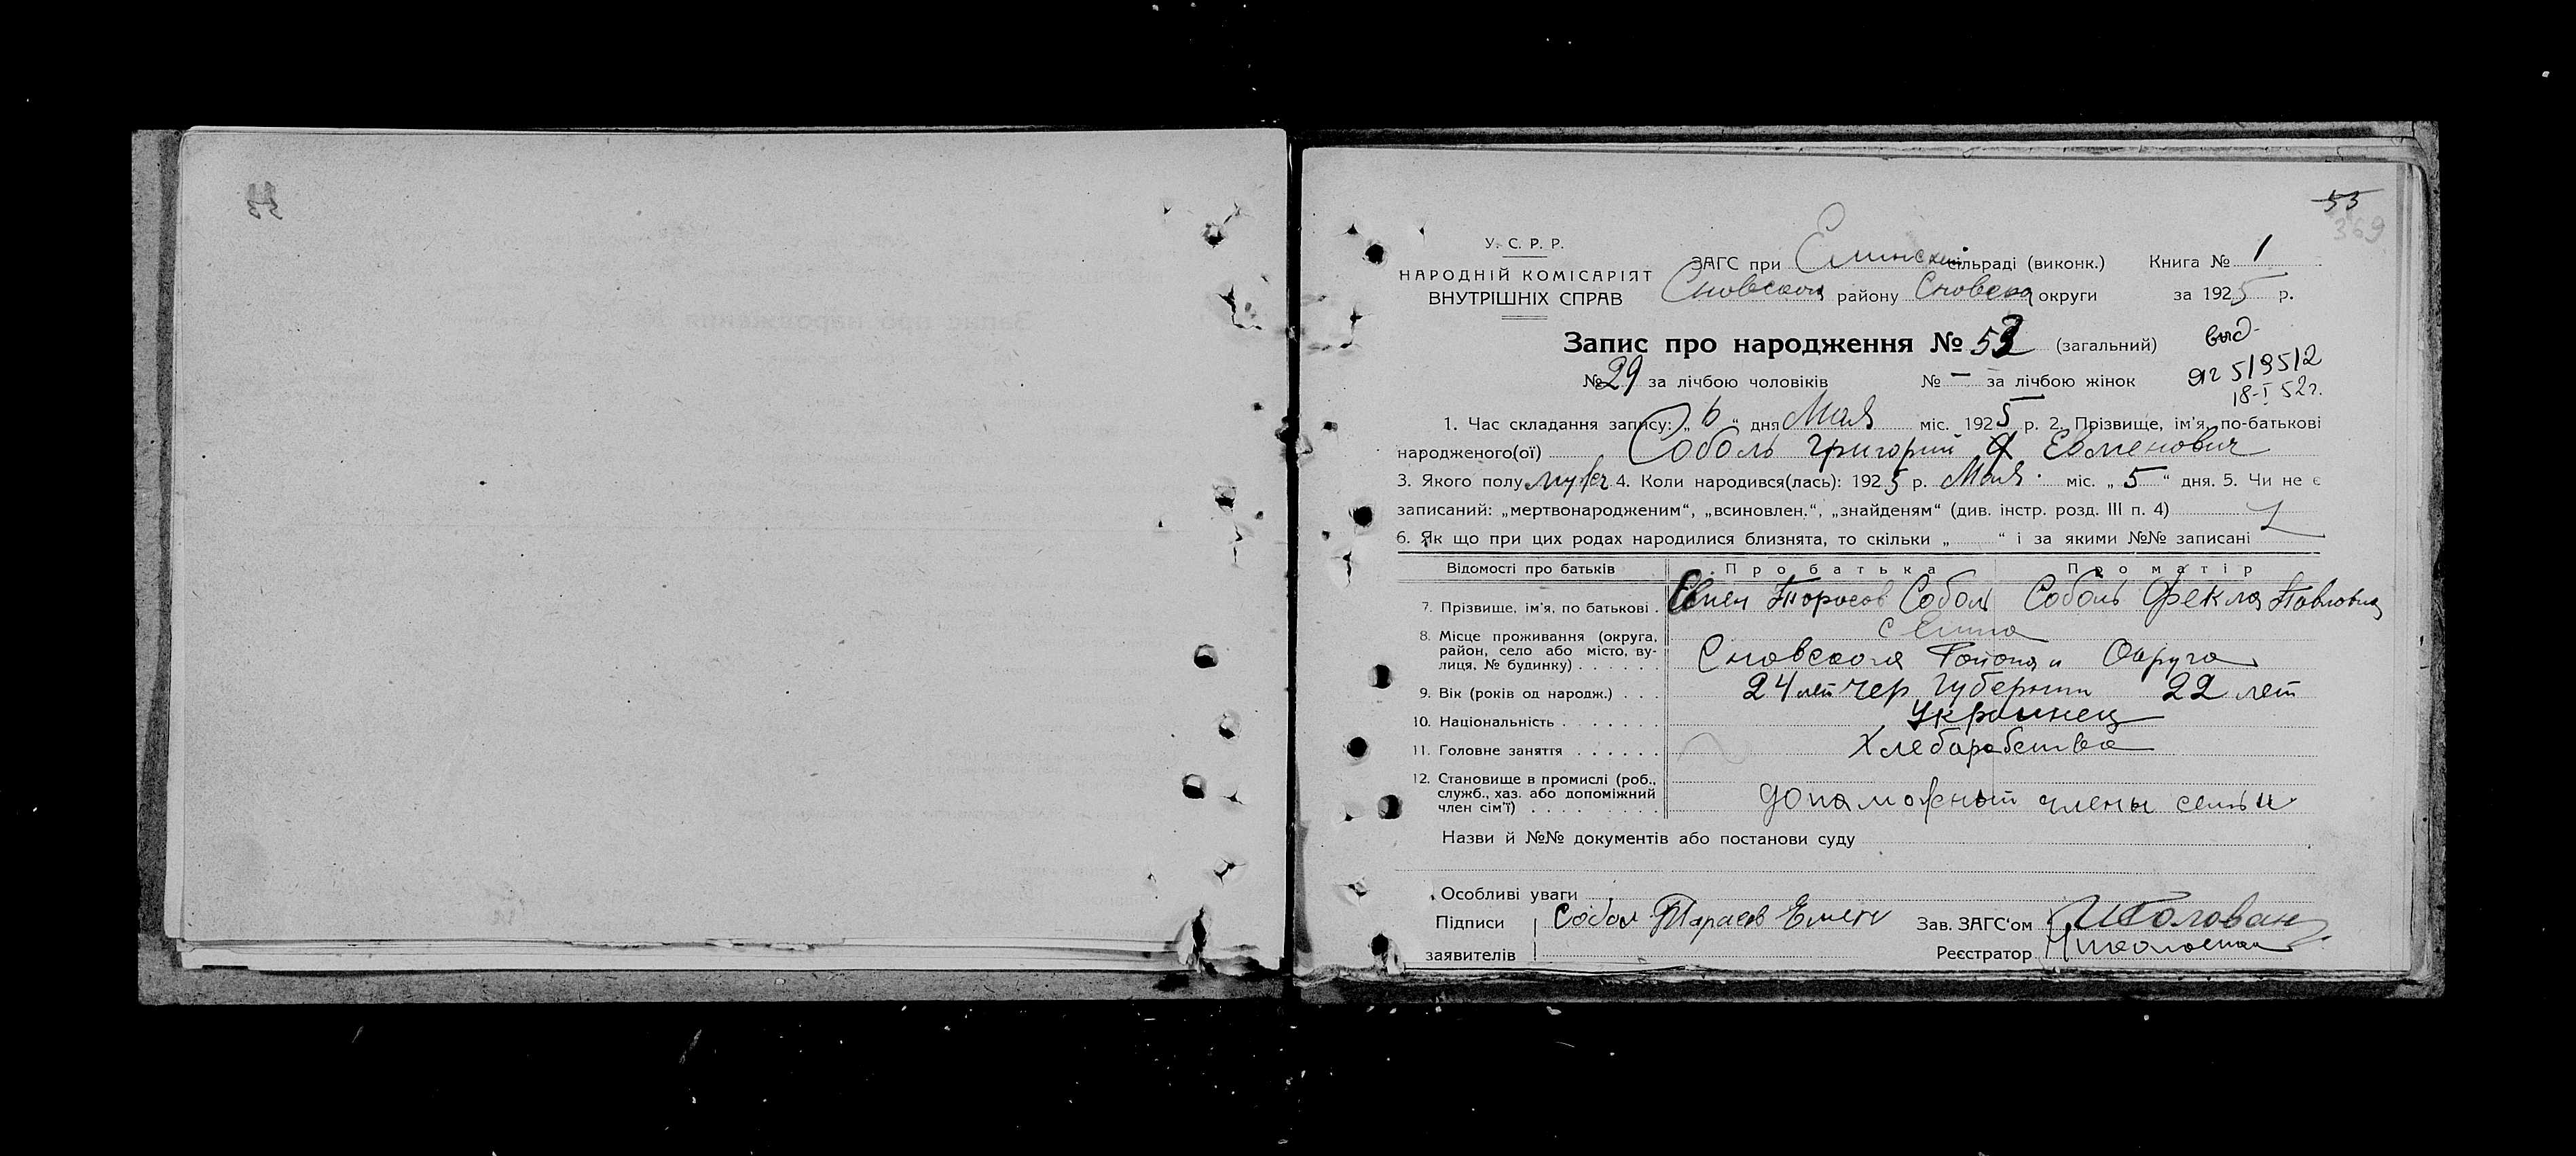 53
369
У. С. Р. Р.
НАРОДНІЙ КОМІСАРІЯТ
ВНУТРІШНІХ СПРАВ
ЗАГС при Елинской сільраді (виконк.) Книга № 1
Сновского району Сновской округи за 1925 р.
Запис про народження № 53 (загальний)
выд.
№ 29 за лічбою чоловіків № — за лічбою жінок
519512
18-I 52г.
1. Час складання запису: „6“ дня Мая міс. 1925 р. 2. Прізвище, ім'я, по-батькові
народженого(ої) Соболь Григорий Евменович
3. Якого полу муж 4. Коли народився(лась): 1925 р. Мая міс. „5“ дня. 5. Чи не є
записаний: „мертвонародженим“, „всиновлен.“, „знайденям“ (див. інстр. розд. III п. 4)
6. Як що при цих родах народилися близнята, то скільки „ “ і за якими №№ записані
Відомості про батьків Про батька Про матір
7. Прізвище, ім'я, по батькові . Евмен Тарасов Соболь Соболь Фекла Павловна
8. Місце проживання (округа, район, село або місто, вулиця, № будинку) . . . . . . с Елина
Сновского Района и Округа
9. Вік (років од народж.) . . . 24 лет Чер Губернии 22 лет
10. Національність . . . . . . . Украинец
11. Головне заняття . . . . . . Хлебарабства
12. Становище в промислі (роб., служб., хаз. або допоміжний член сім'ї) . . . . . . . . . допаможный члены семьи
Назви й №№ документів або постанови суду
Особливі уваги
Підписи Собол Тарасов Емен Зав. ЗАГС'ом
заявителів Реєстратор